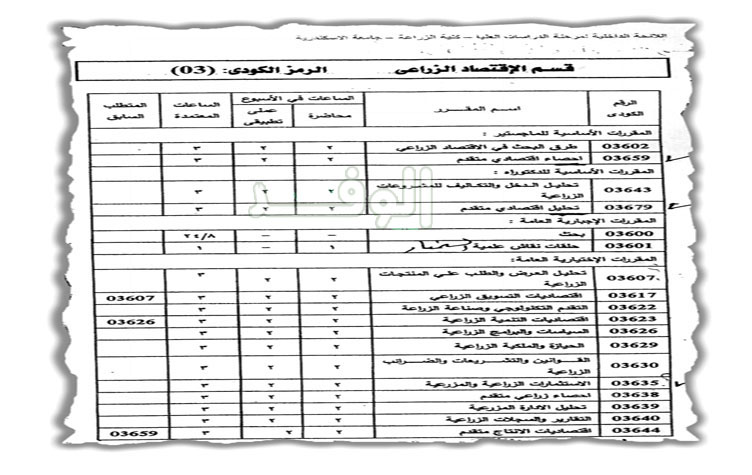 اللائحة الداخلية لمرحلة الدراسات العليا – كلية الزراعة – جامعة الاسكندرية
قسم الإقتصاد الزراعى الرمز الكودى: (03)
الرقم الكودى اسم المقرر الساعات في الأسبوع الساعات المعتمدة المتطلب السابق
محاضرة عملى تطبيقى
المقررات الأساسية للماجستير :
03602 طرق البحث في الاقتصاد الزراعي ٢ ٢ ٣
03659 إحصاء اقتصادي متقدم ٢ ٢ ٣
المقررات الأساسية للدكتوراه :
03643 تحليل الدخل والتكاليف للمشروعات الزراعية ٢ ٢ ٣
03679 تحليل اقتصادي متقدم ٢ ٢ ٣
المقررات الإجبارية العامة :
03600 بحث – – ٢٤/٨
03601 حلقات نقاش علمية ١ – ١
المقررات الإختيارية العامة:
03607 تحليل العرض والطلب على المنتجات الزراعية ٢ ٢ ٣
03617 اقتصاديات التسويق الزراعي ٢ ٢ ٣ 03607
03622 التقدم التكنولوجي وصناعة الزراعة ٢ ٢ ٣
03623 اقتصاديات التنمية الزراعية ٢ ٢ ٣ 03626
03626 السياسات والبرامج الزراعية ٢ ٢ ٣
03629 الحيازة والملكية الزراعية ٢ ٢ ٣
03630 القوانين والتشريعات والضرائب الزراعية ٢ ٢ ٣
03635 الاستثمارات الزراعية والمزرعية ٢ ٢ ٣
03638 احصاء زراعي متقدم ٢ ٢ ٣
03639 تحليل الادارة المزرعية ٢ ٢ ٣
03640 التقارير والسجلات الزراعية ٢ ٢ ٣
03644 اقتصاديات الانتاج متقدم ٢ ٢ ٣ 03659
الوفد